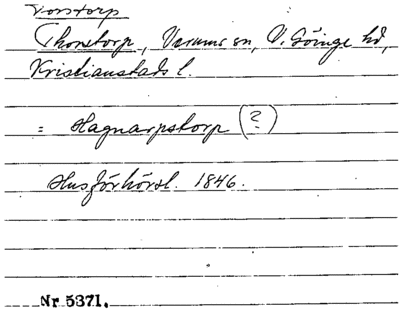 Torstorp
Thorstorp, Verums sn, V. Göinge hd,
Kristianstads l.
= Hagnarpstorp (?)
Husförhörsl. 1846.
Nr 5371.